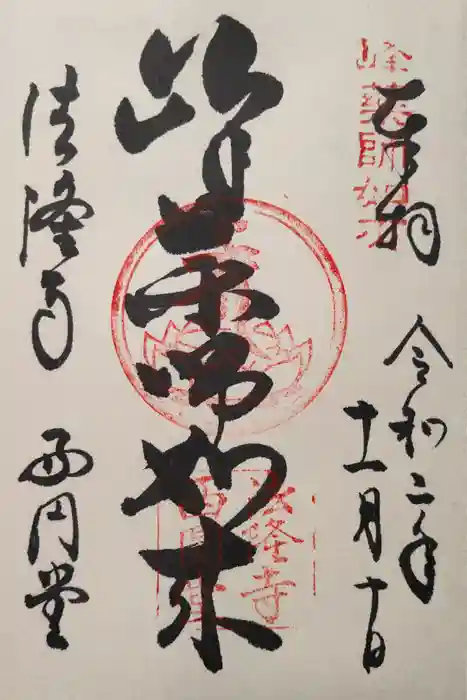 奉拝
令和二年
十一月十日
峰薬師如来
法隆寺 西円堂
峰薬師如来
法隆寺
西圓堂